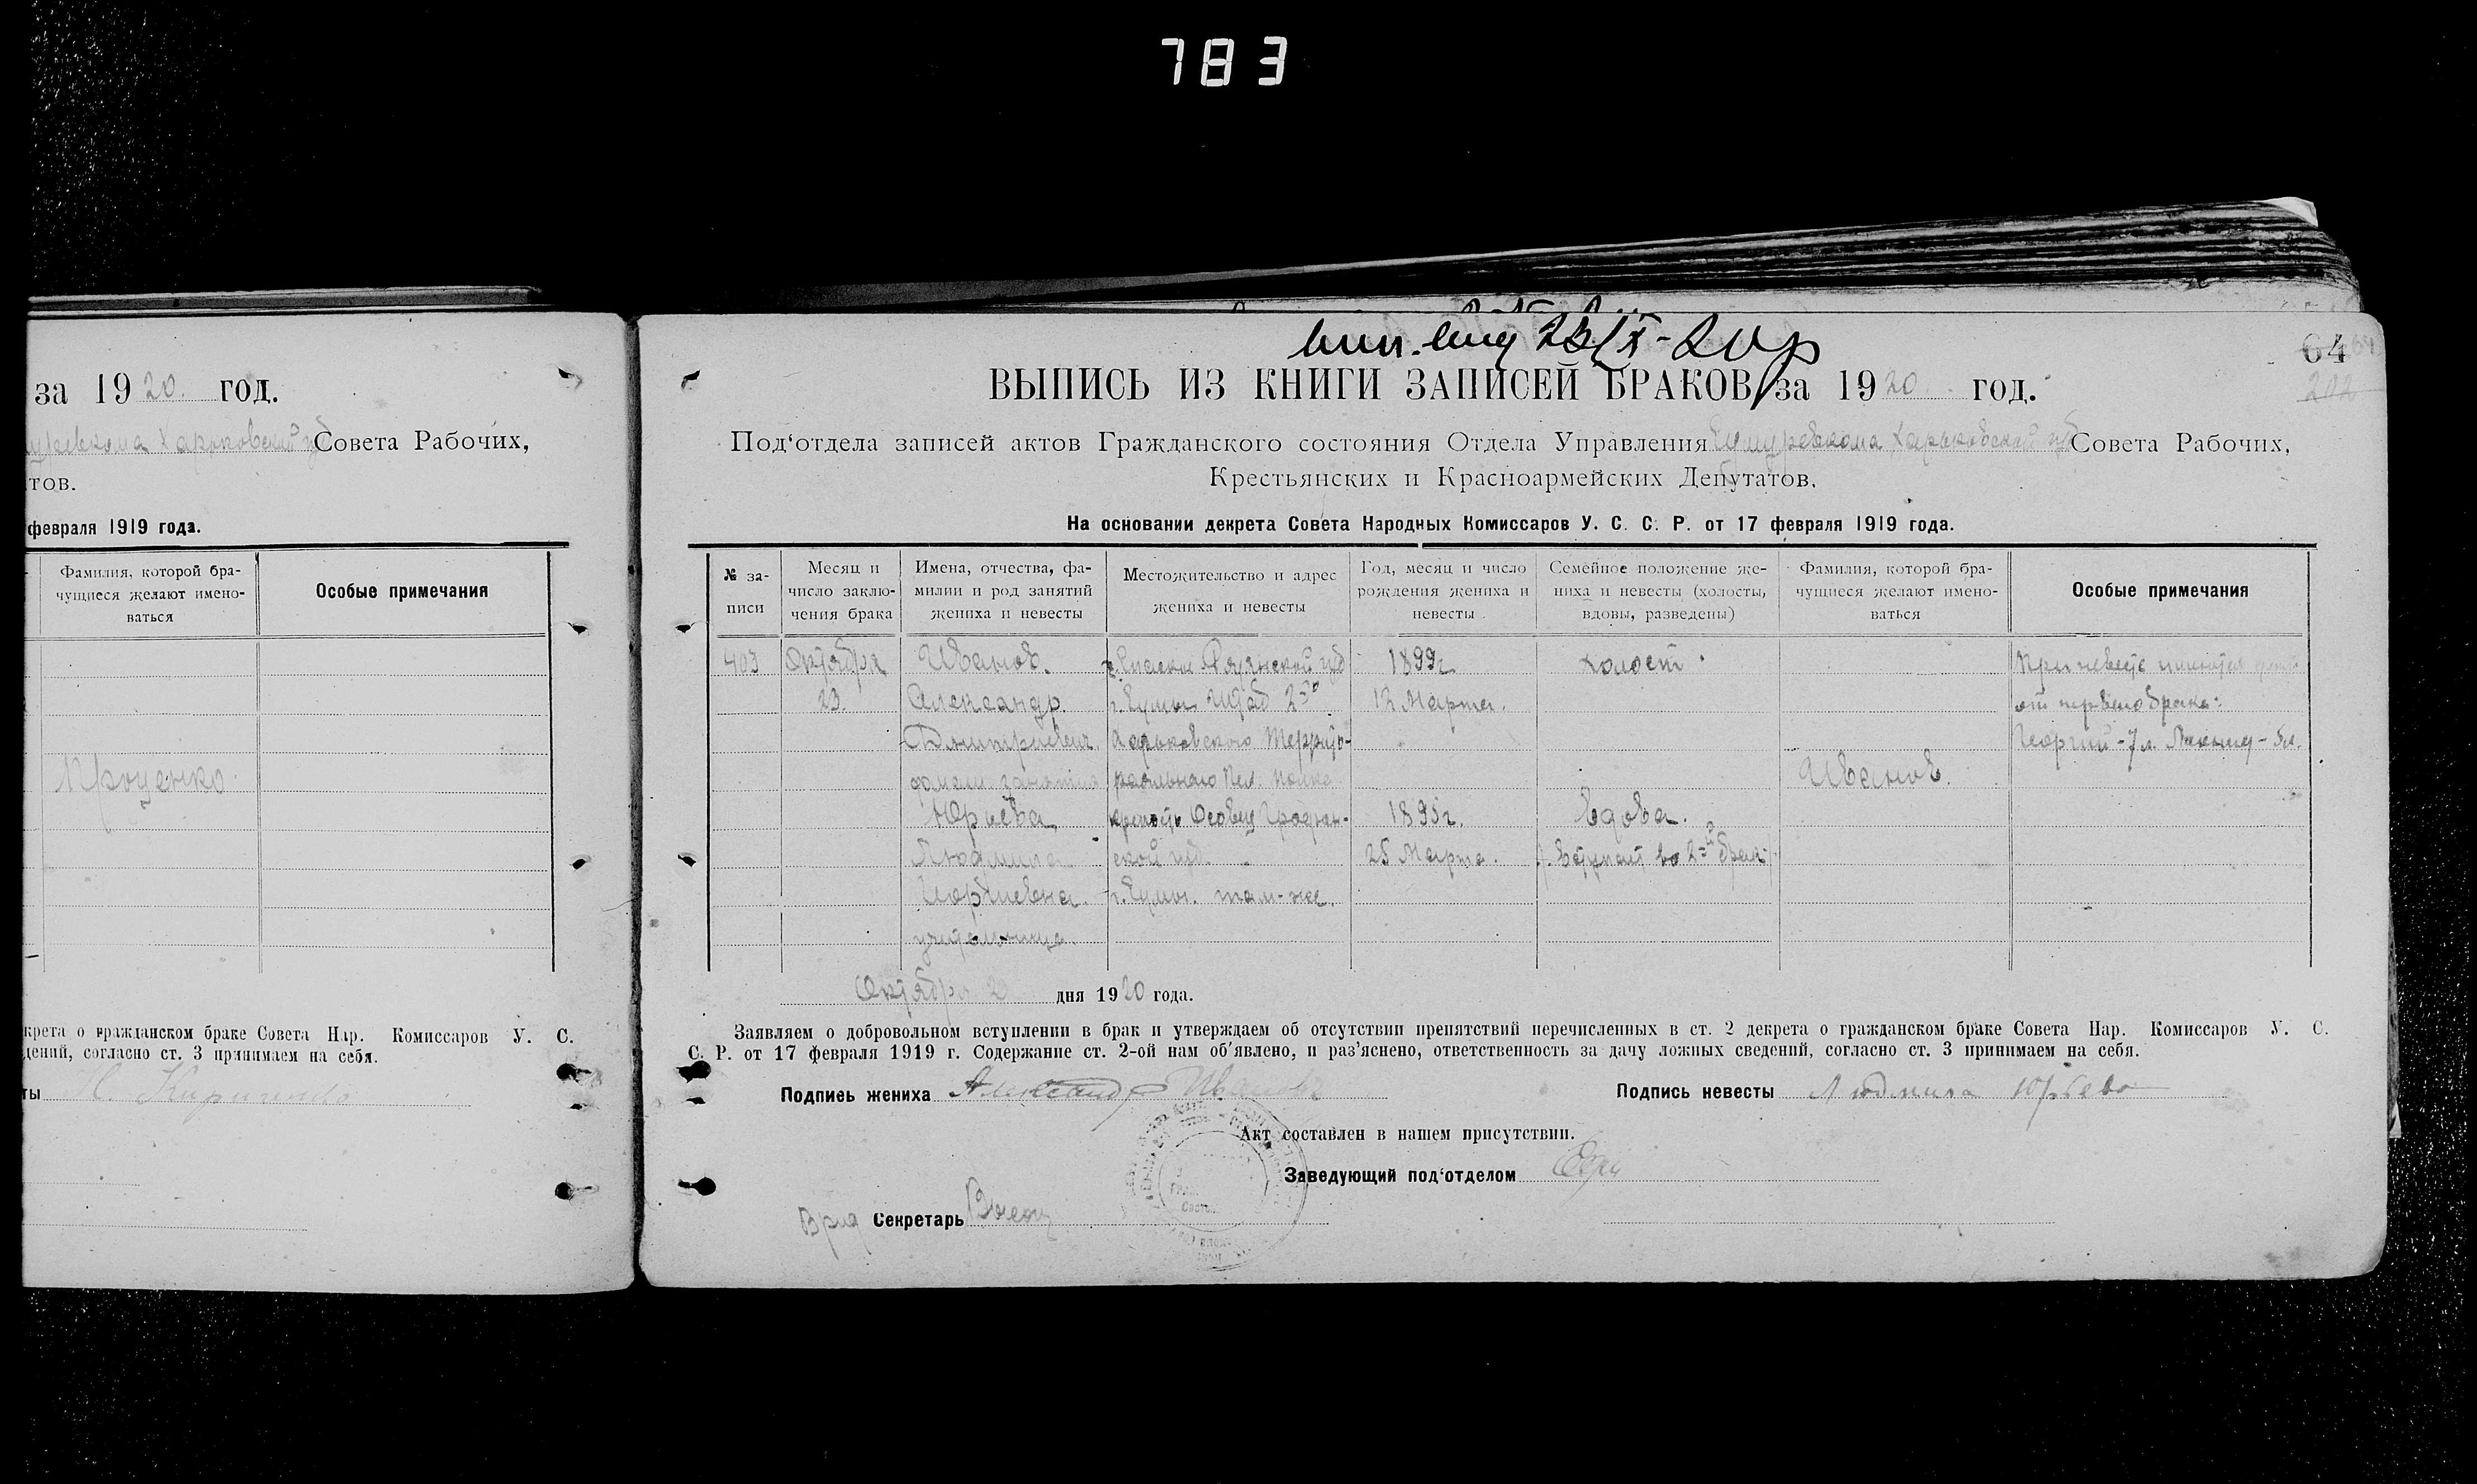 783
за 1920 год.
Харьковской губ Совета Рабочих,
тов.
февраля 1919 года.
Фамилия, которой бра-
чущиеся желают имено-
ваться
Особые примечания
Проценко
крета о гражданском браке Совета Нар. Комиссаров У. С.
дений, согласно ст. 3 принимаем на себя.
ты
64
202
ВЫПИСЬ ИЗ КНИГИ ЗАПИСЕЙ БРАКОВ за 1920 год.
Под‘отдела записей актов Гражданского состояния Отдела Управления Сумуревкома Харьковской губ Совета Рабочих,
Крестьянских и Красноармейских Депутатов.
На основании декрета Совета Народных Комиссаров У. С. С. Р. от 17 февраля 1919 года.
№ за-
писи
Месяц и
число заклю-
чения брака
Имена, отчества, фа-
милии и род занятий
жениха и невесты
Местожительство и адрес
жениха и невесты
Год, месяц и число
рождения жениха и
невесты
Семейное положение же-
ниха и невесты (холосты,
вдовы, разведены)
Фамилия, которой бра-
чущиеся желают имено-
ваться
Особые примечания
403 Октября Иванов. г. Рязанской губ 1899г. холост. При невесте имеются
23. Александр г. Сумы Штаб 2го 12 Марта. от первого брака:
Дмитриевич. Харьковского Террито- Георгий - 7 л. - 5 л.
занятия риального полка Иванов.
Юрьева крепость Осовец Гроднен- 1895г. вдова.
Людмила ской губ. 25 Марта. вступает во 2й брак
Георгиевна. г. Сумы. там-же.
учительница.
Октября 2 дня 1920 года.
Заявляем о добровольном вступлении в брак и утверждаем об отсутствии препятствий перечисленных в ст. 2 декрета о гражданском браке Совета Нар. Комиссаров У. С.
С. Р. от 17 февраля 1919 г. Содержание ст. 2-ой нам об’явлено, и раз’яснено, ответственность за дачу ложных сведений, согласно ст. 3 принимаем на себя.
Подпись жениха Александр Ивановъ
Подпись невесты Людмила Юрьева
Акт составлен в нашем присутствии.
Заведующий под‘отделом
Врид Секретарь